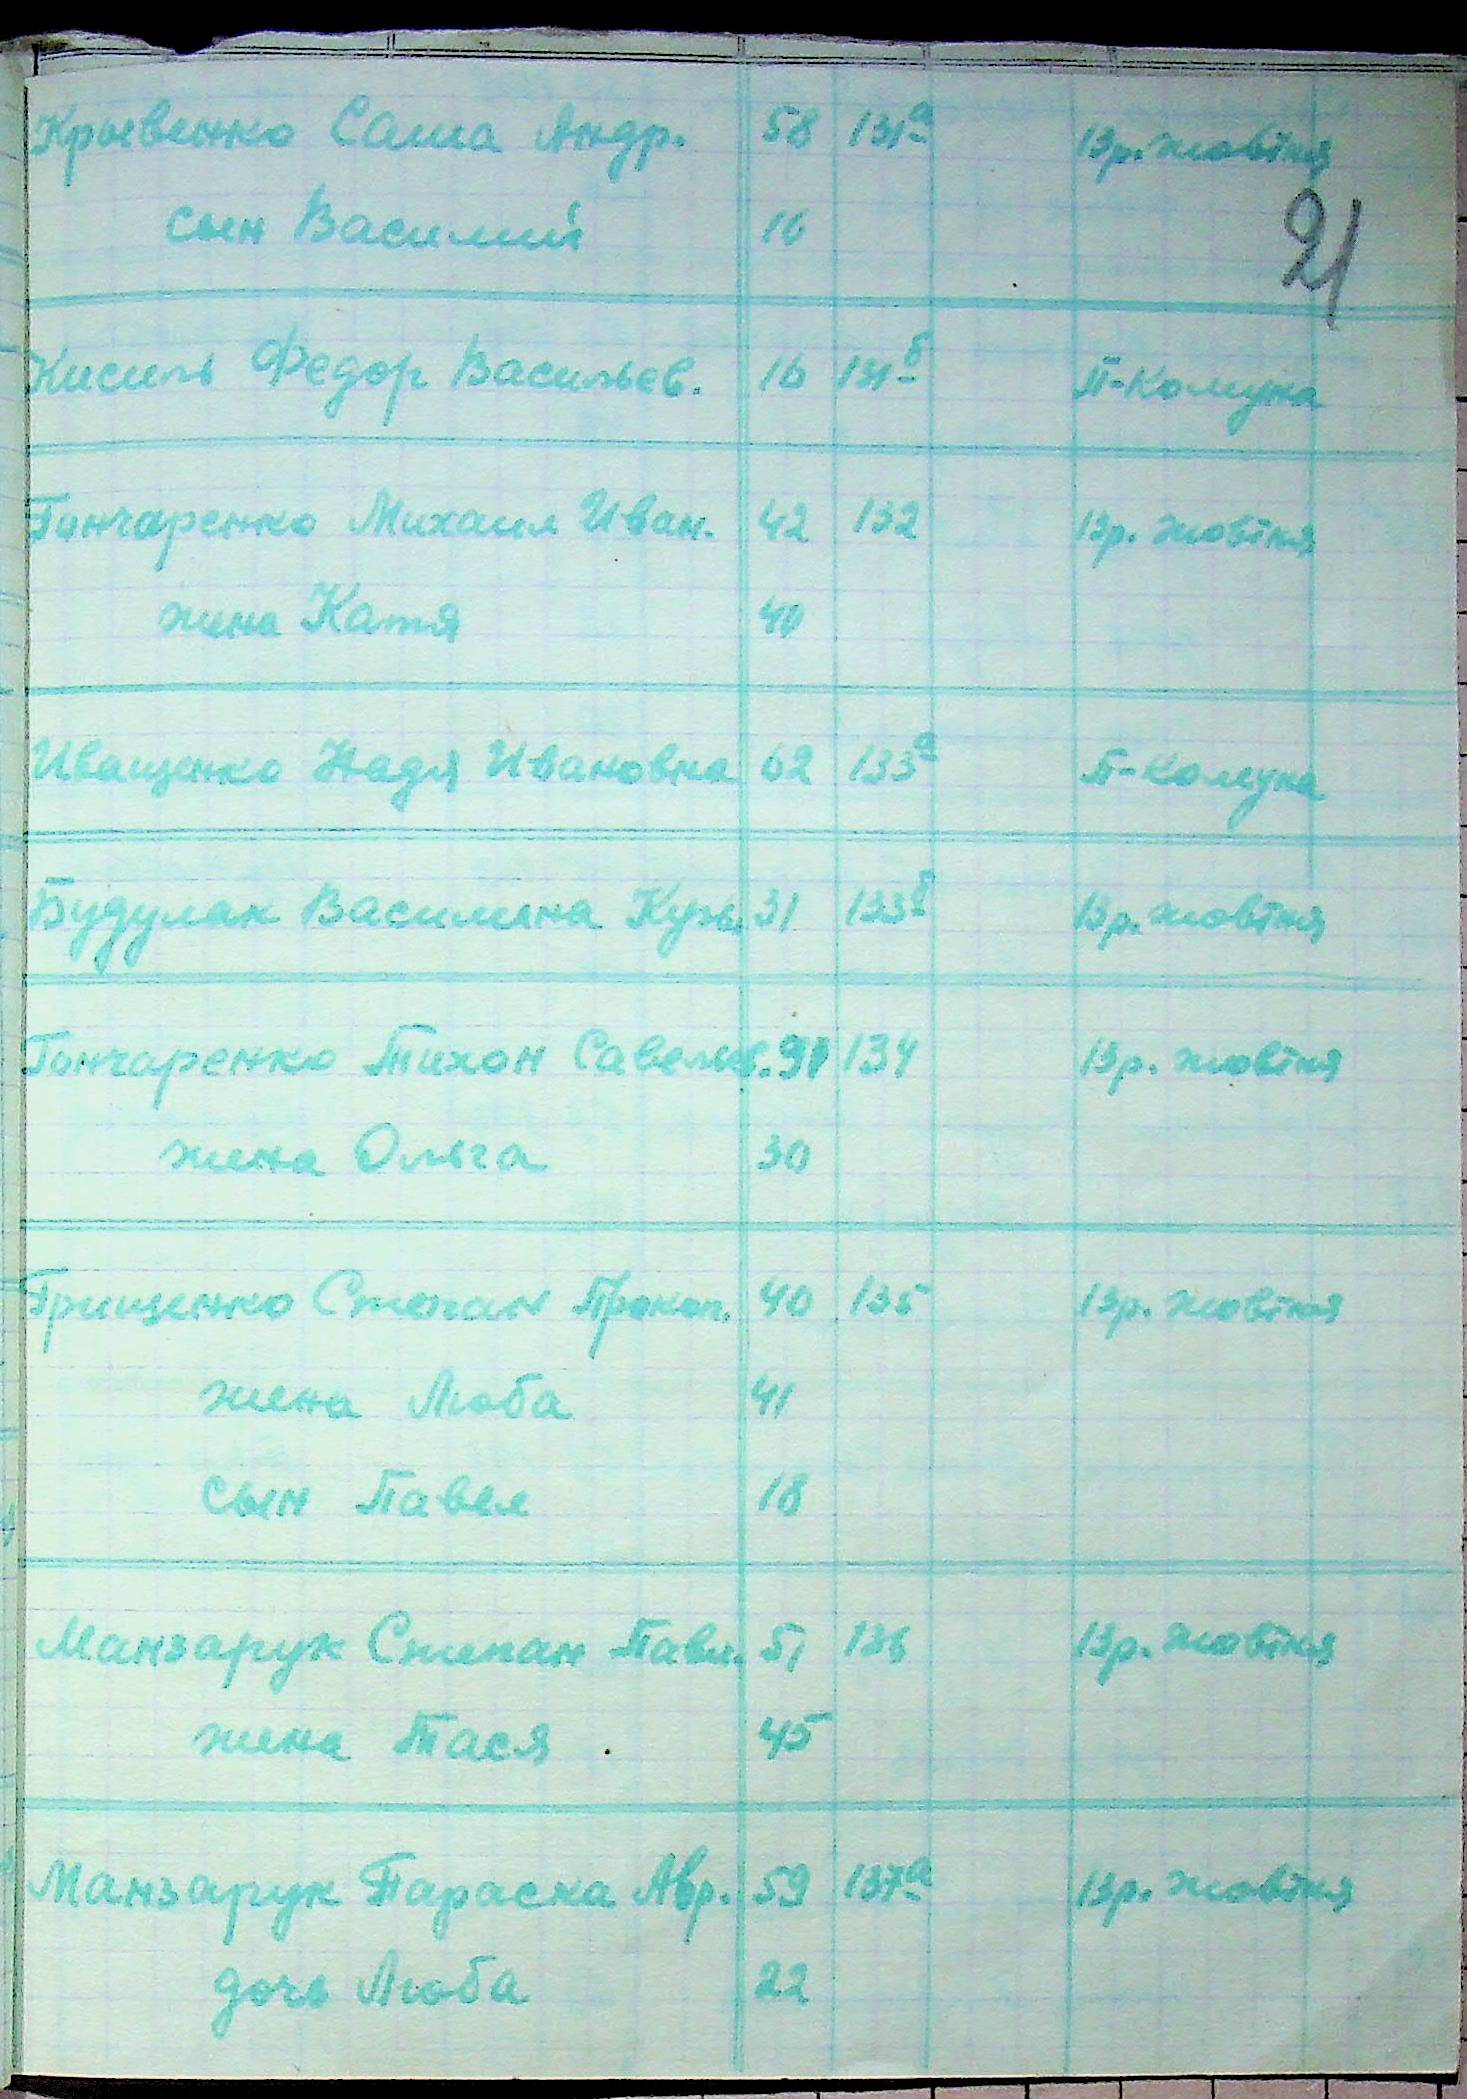 Кривенко Саша Андр. 58 131а 13р. жовтня
21
сын Василий 16
Кисиль Федор Васильев. 16 131б П-Комуна
Гончаренко Михаил Иван. 42 132 13р. жовтня
жена Катя 40
Иващенко Надя Ивановна 62 133а П-Комуна
Будулак Василина Кузь. 31 133б 13р. жовтня
Гончаренко Тихон Савельев. 134 13р. жовтня
жена Ольга 30
Грищенко Степан Прокоп. 40 135 13р. жовтня
жена Люба 41
сын Павел 18
Манзарук Степан Павл. 51 136 13р. жовтня
жена Тася 45
Манзарук Параска Авр. 59 137а 13р. жовтня
дочь Люба 22